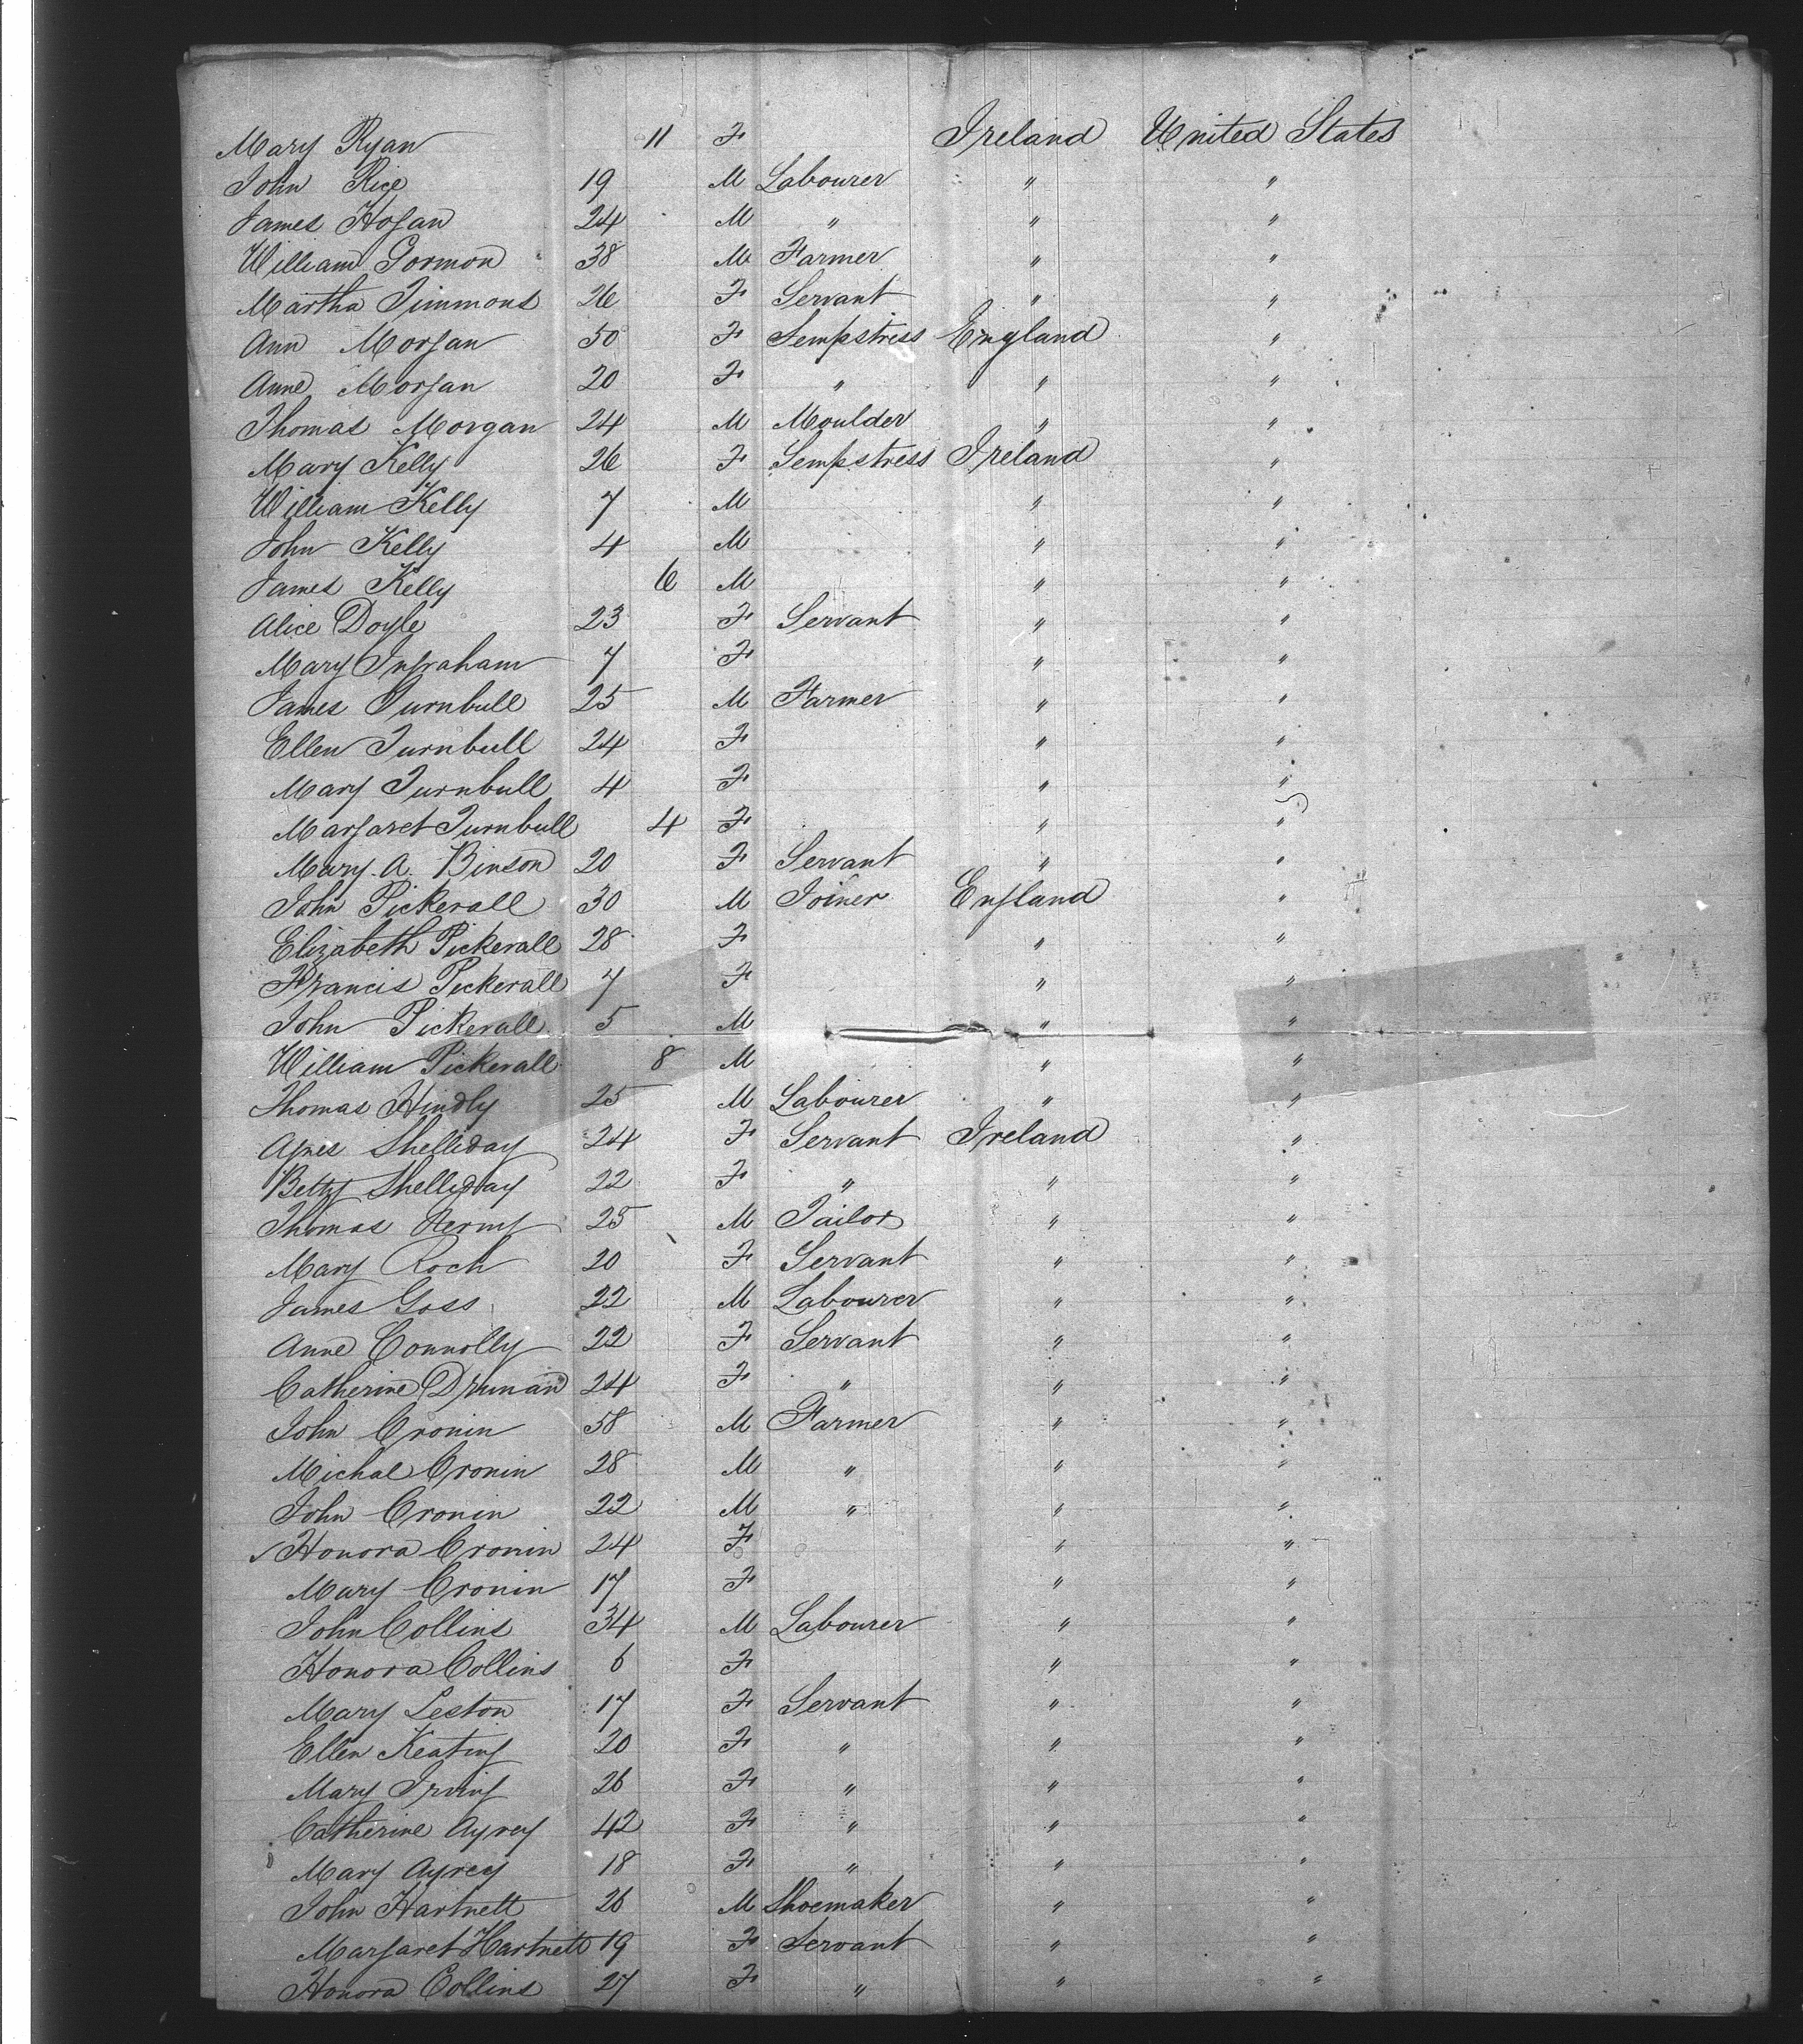 Mary Ryan 11 F Ireland United States
John Rice 19 M Labourer " "
James Hogan 24 M " " "
William Gormon 38 M Farmer " "
Martha Timmons 26 F Servant " "
Ann Morgan 50 F Sempstress England "
Anne Morgan 20 F " " "
Thomas Morgan 24 M Moulder " "
Mary Kelly 26 F Sempstress Ireland "
William Kelly 7 M " "
John Kelly 4 M " "
James Kelly 6 M " "
Alice Doyle 23 F Servant " "
Mary Ingraham 7 F " "
James Turnbull 25 M Farmer " "
Ellen Turnbull 24 F " "
Mary Turnbull 4 F " "
Margaret Turnbull 4 F " "
Mary A. Binson 20 F Servant " "
John Pickerall 30 M Joiner England "
Elizabeth Pickerall 28 F " "
Francis Pickerall 7 F " "
John Pickerall 5 M " "
William Pickerall 8 M " "
Thomas Hindly 25 M Labourer " "
Agnes Shelliday 24 F Servant Ireland "
Betty Shelliday 22 F " " "
Thomas 25 M Tailor " "
Mary Roch 20 F Servant " "
James Goss 22 M Labourer " "
Anne Connolly 22 F Servant " "
Catherine 24 F " " "
John Cronin 58 M Farmer " "
Michal Cronin 28 M " " "
John Cronin 22 M " " "
Honora Cronin 24 F " "
Mary Cronin 17 F " "
John Collins 34 M Labourer " "
Honora Collins 6 F " "
Mary Leston 17 F Servant " "
Ellen Keating 20 F " " "
Mary Irving 26 F " " "
Catherine Ayrey 42 F " " "
Mary Ayrey 18 F " " "
John Hartnett 26 M Shoemaker " "
Margaret Hartnett 19 F Servant " "
Honora Collins 27 F " " "